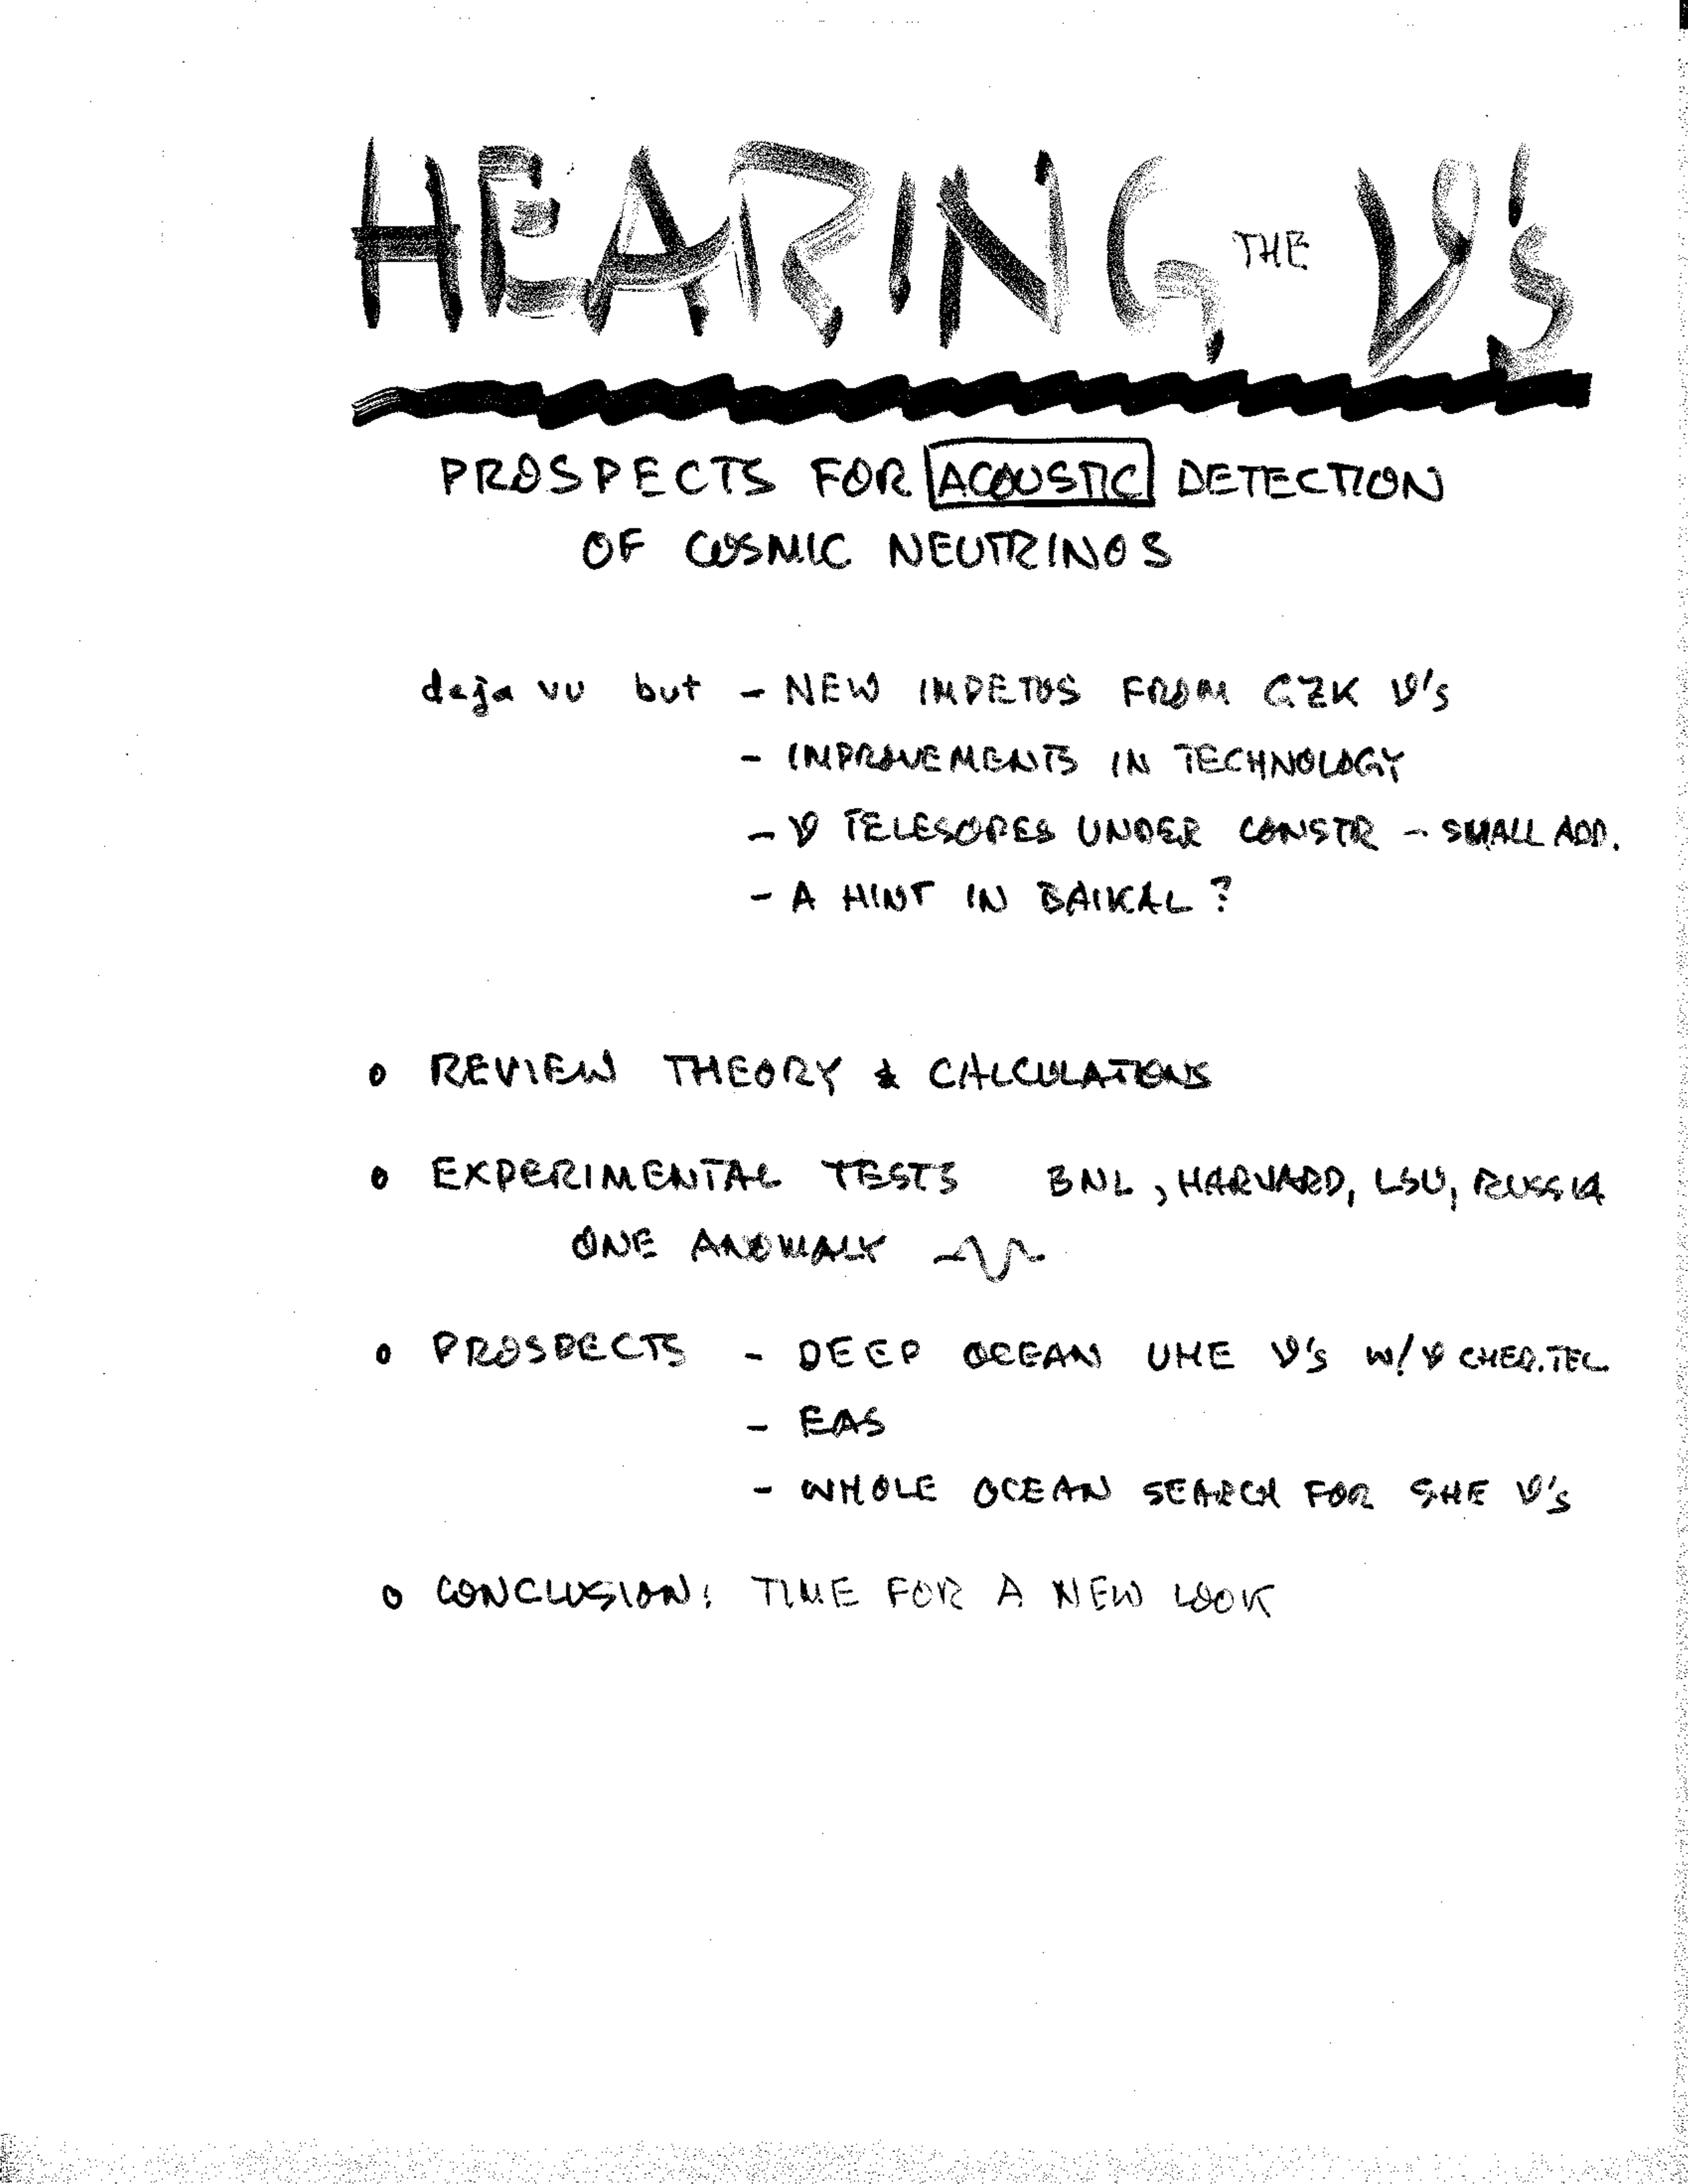 HEARING THE ν's
PROSPECTS FOR ACOUSTIC DETECTION
OF COSMIC NEUTRINOS
deja vu but - NEW IMPETUS FROM GZK ν's
- IMPROVEMENTS IN TECHNOLOGY
- ν TELESOPES UNDER CONSTR - SMALL ADD.
- A HINT IN BAIKAL?
o REVIEW THEORY & CALCULATIONS
o EXPERIMENTAL TESTS BNL, HARVARD, LSU, RUSSIA
ONE ANOMALY
o PROSPECTS - DEEP OCEAN UHE ν's W/ν CHER.TEL.
- EAS
- WHOLE OCEAN SEARCH FOR SHE ν's
o CONCLUSION: TIME FOR A NEW LOOK